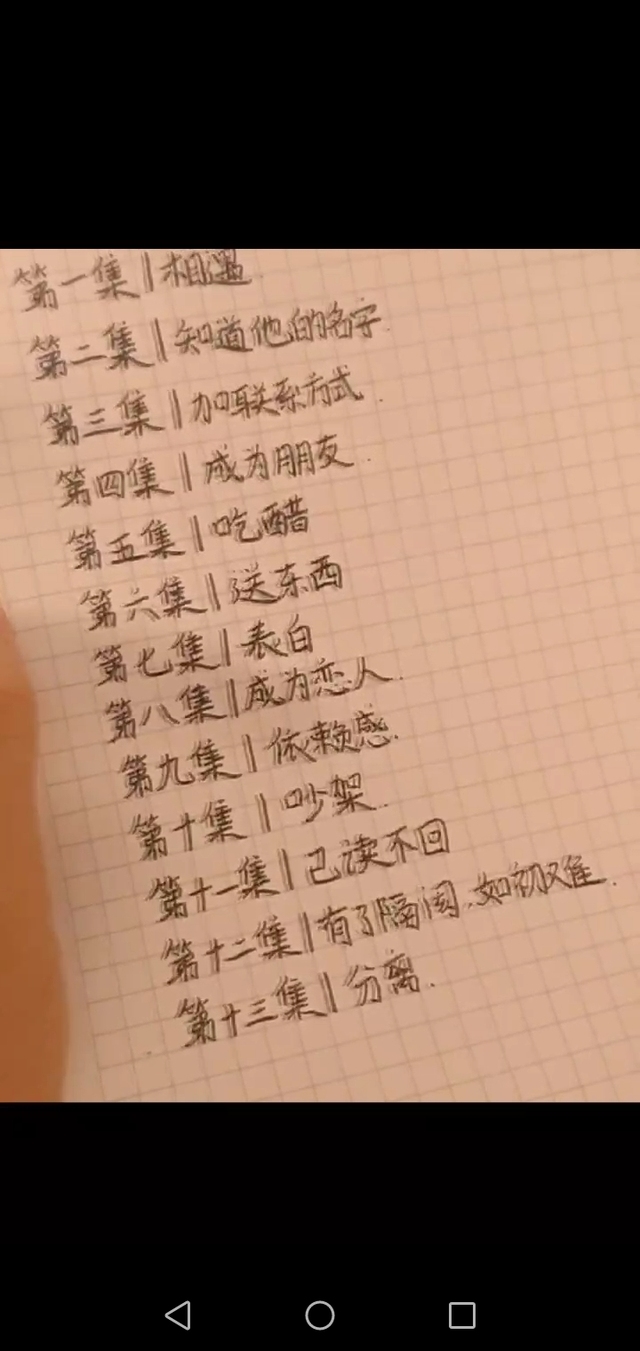 第一集‖相遇.
第二集‖知道他的名字.
第三集‖加联系方式.
第四集‖成为朋友.
第五集‖吃醋
第六集‖送东西
第七集‖表白
第八集‖成为恋人.
第九集‖依赖感.
第十集‖吵架.
第十一集‖已读不回
第十二集‖有了隔阂.如初难.
第十三集‖分离.